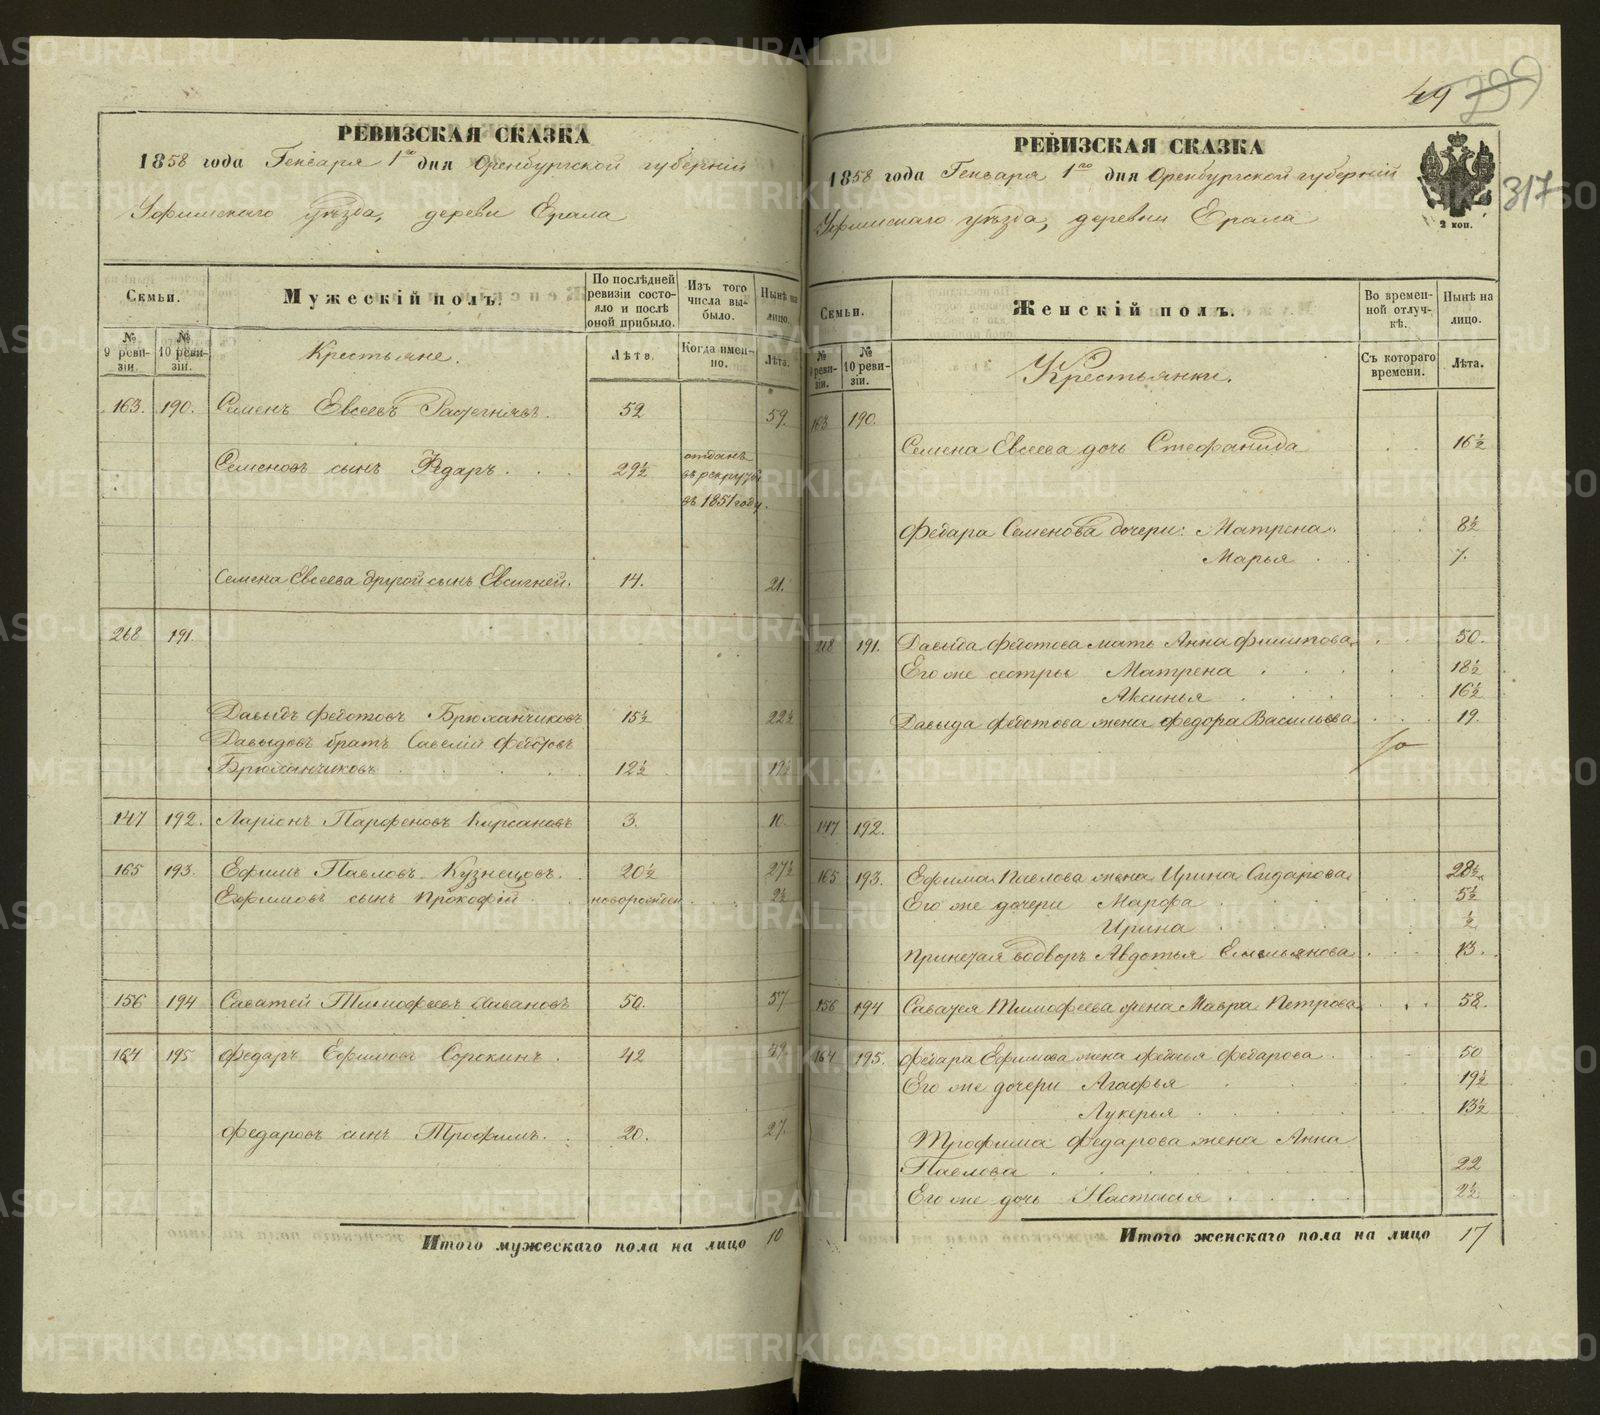 РЕВИЗСКАЯ СКАЗКА
1858 года Генваря 1го дня Оренбургской губернiи
Уфимскаго уѣзда, деревни Ерала
Семьи.
Мужескiй полъ.
По послѣдней ревизiи состояло и послѣ оной прибыло.
Изъ того числа выбыло.
Нынѣ на лицо.
№ 9 ревизiи.
№ 10 ревизiи.
Крестьяне.
Лѣта.
Когда именно.
Лѣта.
163. 190. Семенъ Евсеевъ 52 59.
Семеновъ сынъ Федаръ 29½ отданъ
въ рекруты
въ 1851 году.
Семена Евсеева другой сынъ Евсигней. 14. 21.
268 191.
Давыдъ Федотовъ Брюханчиковъ 15½ 22½
Давыдовъ братъ Савелiй Федотовъ
Брюханчиковъ 12½ 19½
147 192. Ларiонъ Парфеновъ Кирсановъ 3. 10.
165 193. Ефимъ Павловъ Кузнецовъ. 20½ 27½
Ефимовъ сынъ Прокофiй новорожден 2½
156 194 Саватей Тимофеевъ 50. 57
164 195 Федаръ Ефимовъ Сорокинъ. 42 49
Федаровъ сынъ Трофимъ. 20. 27.
Итого мужескаго пола на лицо 10
49
317
РЕВИЗСКАЯ СКАЗКА
1858 года Генваря 1го дня Оренбургской губернiи
Уфимскаго уѣзда, деревни Ерала
2 коп.
Семьи.
Женскiй полъ.
Во временной отлучкѣ.
Нынѣ на лицо.
№ 9 ревизiи.
№ 10 ревизiи.
Крестьянки.
Съ котораго времени.
Лѣта.
163 190.
Семена Евсеева дочь Стефанида 16½
Федара Семенова дочери: Матрена 8½
Марья 7.
268 191. Давыда Федотова мать Анна Филипова 50.
Его же сестры Матрена 18½
Аксинья 16½
Давыда Федотова жена Федора Васильева 19.
147 192.
165 193. Ефима Павлова жена Ирина Сидарова 28½
Его же дочери Марфа 5½
Ирина ½
Авдотья Емельянова 13.
156 194 Саватея Тимофеева жена Мавра Петрова 58.
164 195. Федара Ефимова жена Федосья Федарова 50
Его же дочери Агафья 19½
Лукерья 13½
Трофима Федарова жена Анна
Павлова 22
Его же дочь Настасья 2½
Итого женскаго пола на лицо 17
METRIKI.GASO-URAL.RU